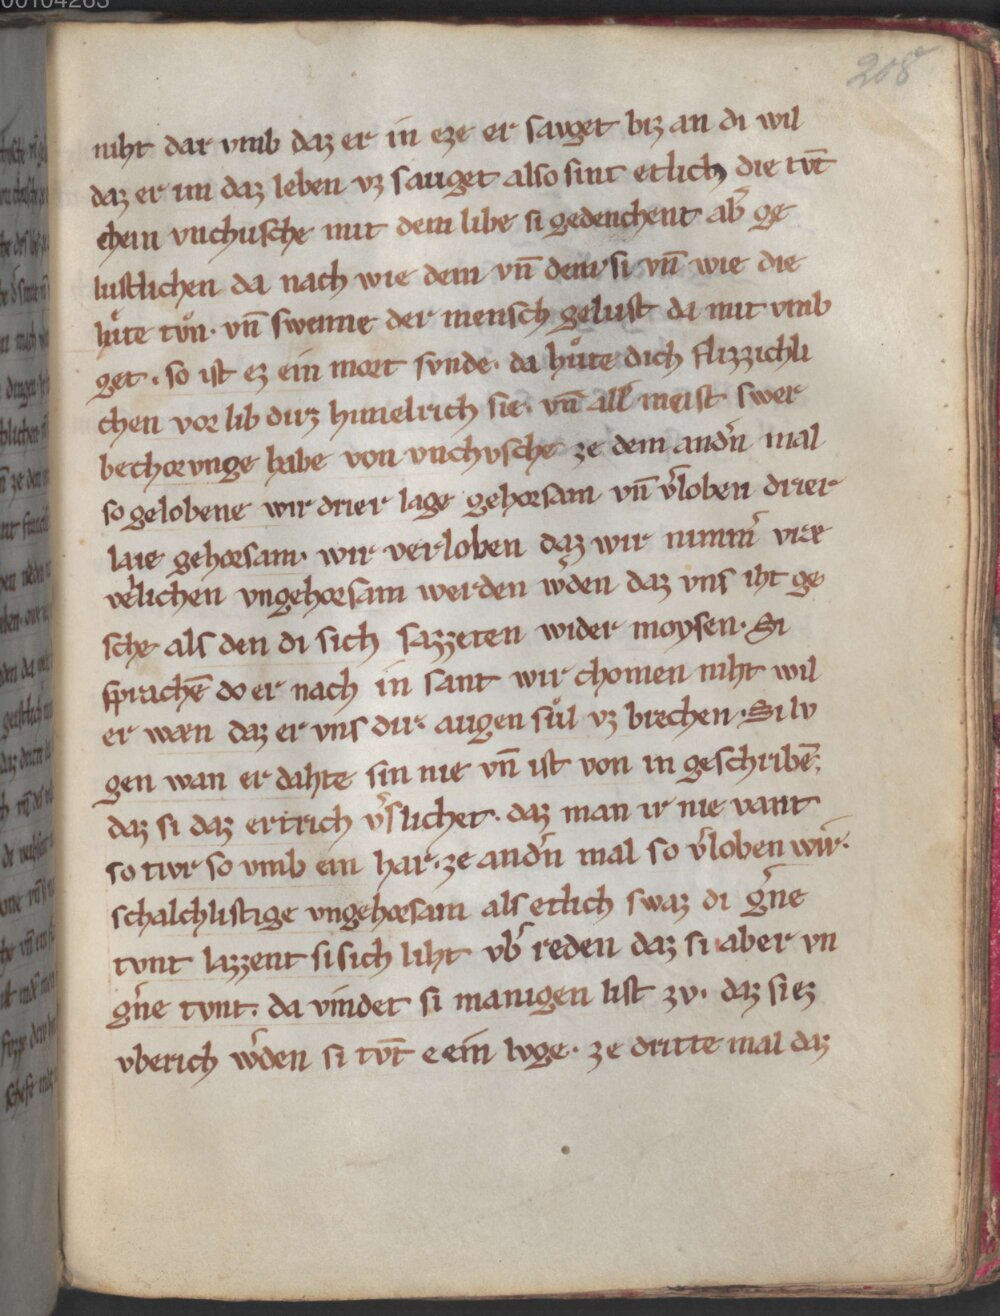 208
niht dar vmb daz er in eze er sauget biz an di wil
daz er im daz leben vz sauget also sint etlich die tvt̄
chein vnchusche mit dem libe si gedenchent ab̾ ge
lustlichen da nach wie dem vn̄ dem si vn̄ wie die
hůte tůn· vn̄ swenne der mensch gelust da mit vmb
get · so ist ez ein mort svnde· da hůte dich flizzichli
chen vor lib dirz himelrich sie· vn̄ all meist swer
bechorvnge habe von vnchvsche ze dem and̾n mal
so gelobene wir drier lage gehorsam vn̄ v̾loben drier
laie gehorsam· wir verloben daz wir nimm̾ vræ
væ̾lichen vngehorsam werden w̾den daz vns iht ge
sche als den di sich sazzeten wider moysen· Si
sprachē do er nach in sant wir chomen niht wil
er wæn daz er vns dir augen sůl vz brechen· Si lv
gen wan er dahte sin nie vn̄ ist von in geschribē·
daz si daz ertrich v̾slichet· daz man ir nie vant
so tivr so vmb ein har· ze and̾n mal so v̾loben wir·
schalchlistige vngehorsam als etlich swaz di g̾ne
tvnt lazzent si sich liht vb̾ reden daz si aber vn
g̾ne tvnt· da vindet si manigen list zv· daz si ez
vberich w̾den si tvt̄ e ein lvge· ze dritte mal daz